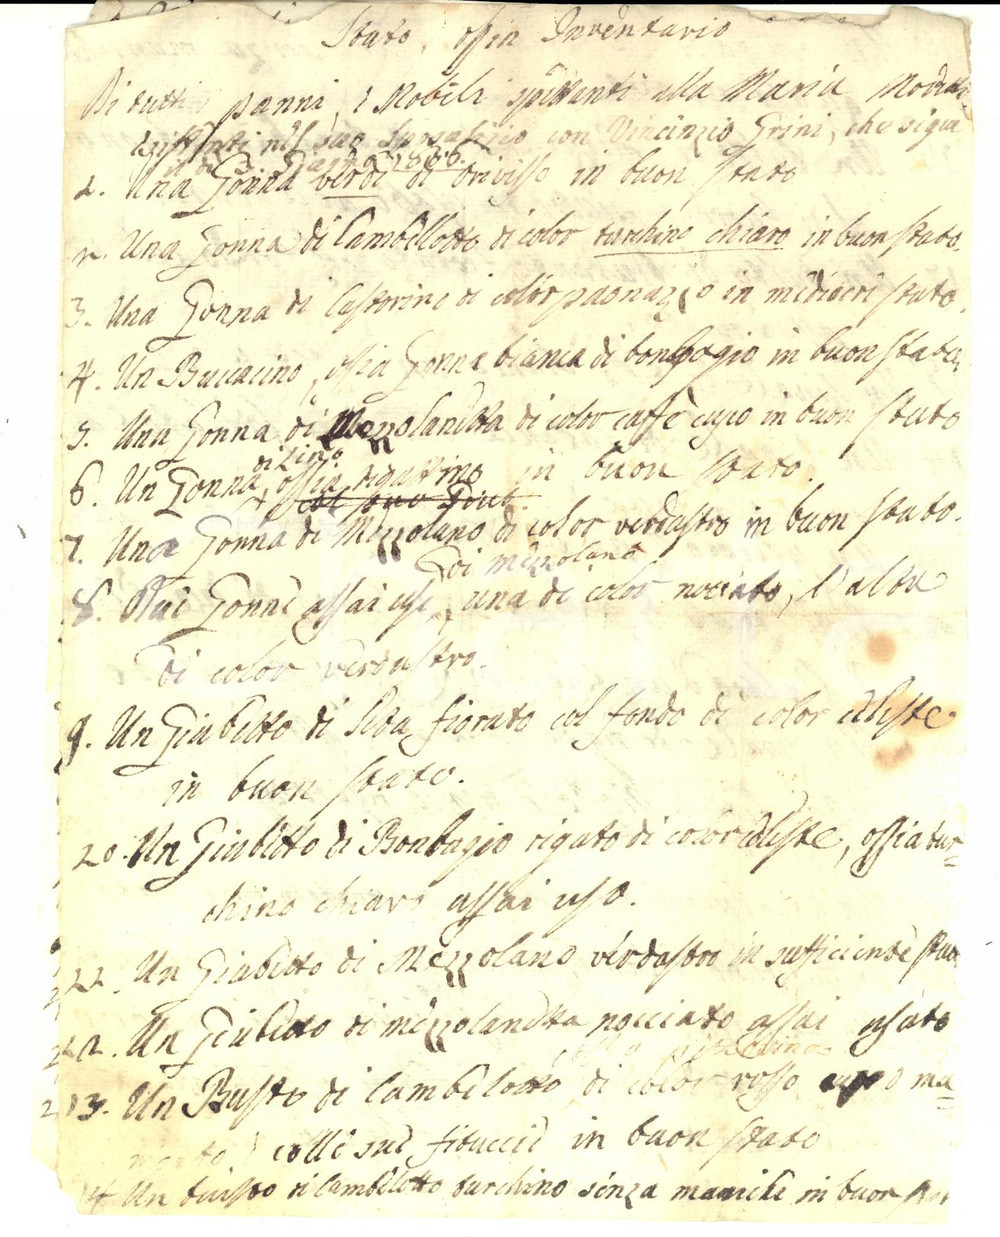 Stato, ossia Inventario
Di tutti i panni, e Mobili spettanti alla Maria
esistenti nel suo con Vincenzio Grini, che segue
1806.
1. Una Gonna verde di in buon stato
2. Una Gonna di Cambellotto di color turchino chiaro in buon stato.
3. Una Gonna di Castorino di color paonazzo in mediocre stato.
4. Un Buccacino, ossia Gonna bianca di bonbagio in buon stato.
5. Una Gonna di Mezzolanetta di color caffè cupo in buon stato
di Lino
6. Un Gonna, ossia rigattino in buon stato.
7. Una Gonna di Mezzolano di color verdastro in buon stato.
di mezzolano
8. Due Gonne assai use, una di color nocciato, l'altra
di color verdastro.
9. Un Giubetto di seta fiorato col fondo di color celeste
in buon stato.
10. Un Giubetto di Bonbagio rigato di color celeste, ossia tur=
chino chiaro assai uso.
11. Un Giubetto di Mezzolano verdastro in sufficiente stato
12. Un Giubetto di mezzolanetta nocciato assai usato
13. Un Busto di Cambelotto di color rosso cupo ma=
colle sue fibuccie in buon stato
14. Un busto di Cambelotto turchino senza maniche in buon stato